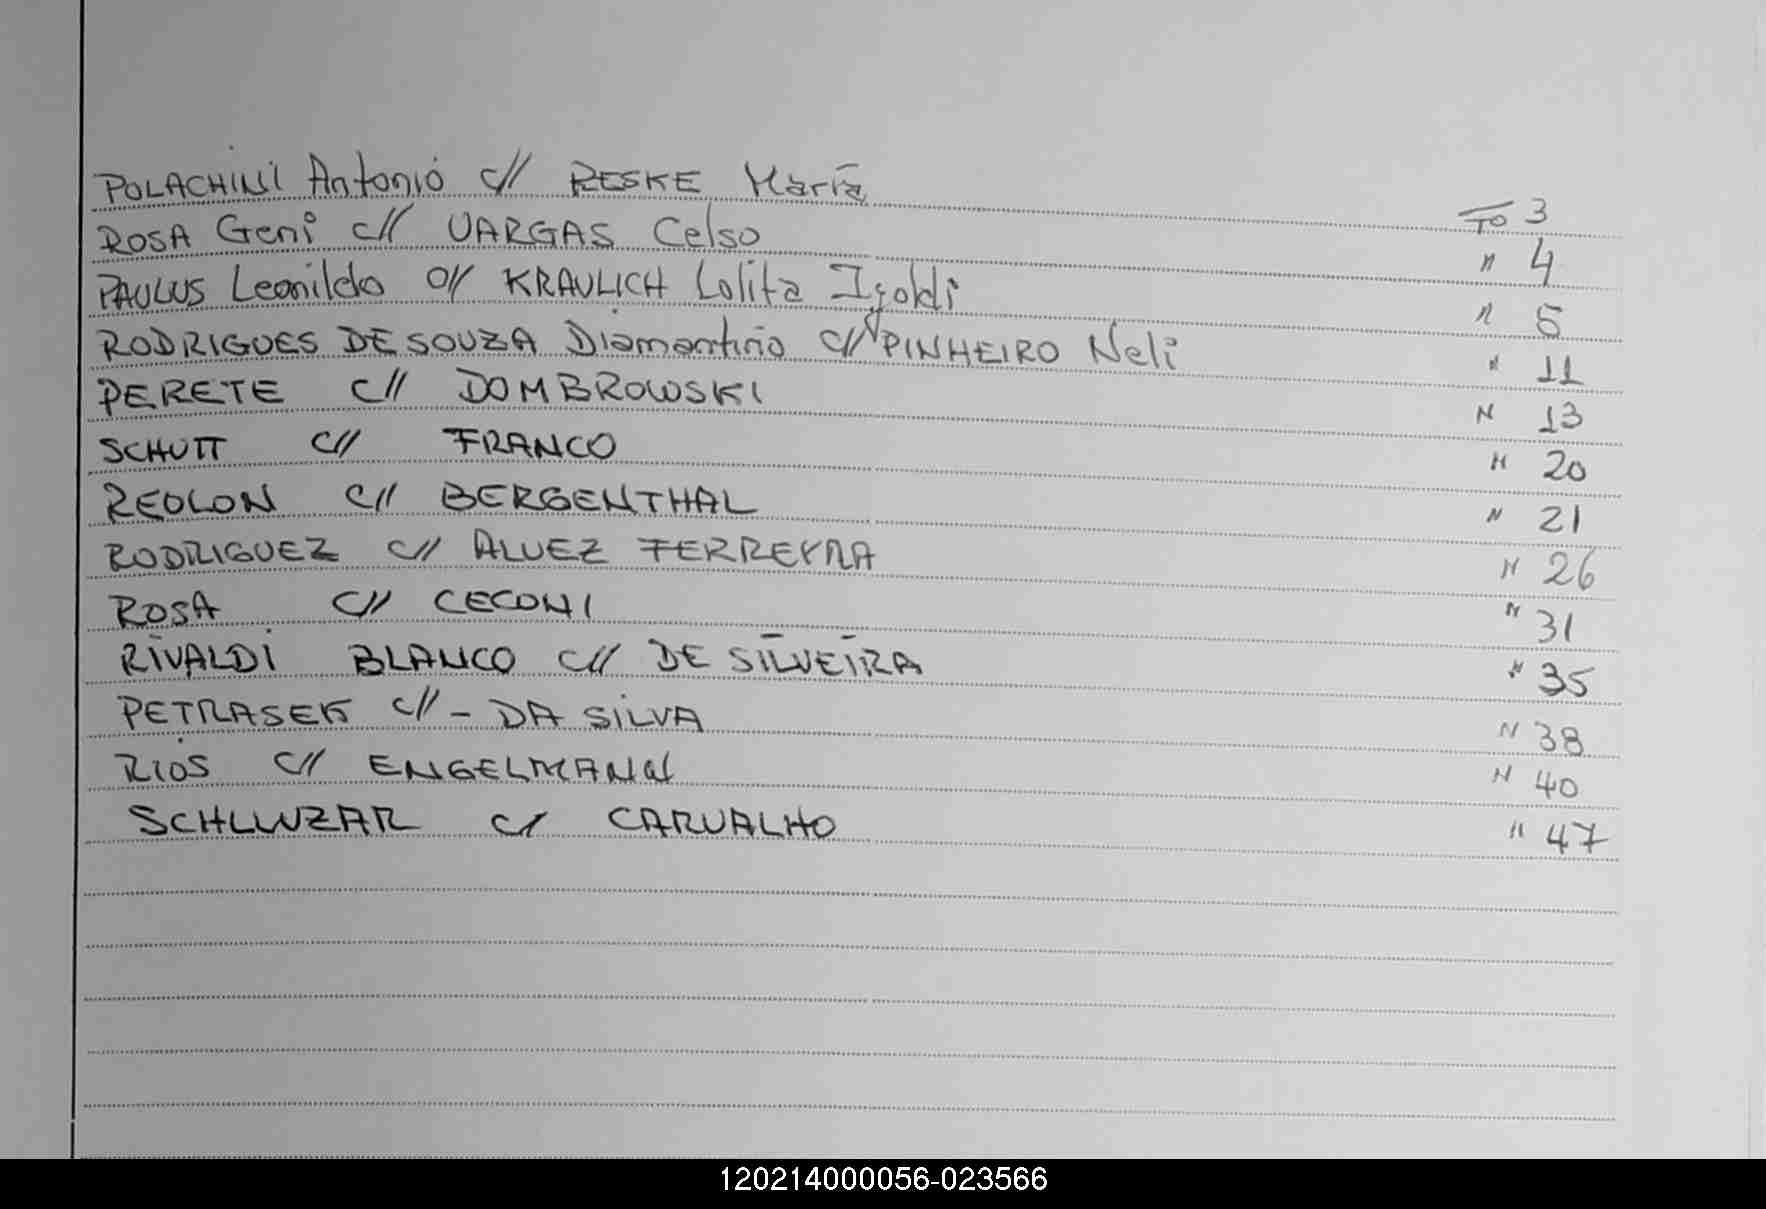 POLACHINI Antonio c// RESKE María To 3
ROSA Geni c// VARGAS Celso " 4
PAULUS Leonildo c// KRAULICH Lolita Igoldi " 5
RODRIGUES DE SOUZA Diamantino c// PINHEIRO Neli " 11
PERETE c// DOMBROWSKI " 13
SCHUTT c// FRANCO " 20
REOLON c// BERGENTHAL " 21
RODRIGUEZ c// ALVEZ FERREYRA " 26
ROSA c// CECONI " 31
RIVALDI BLANCO c// DE SILVEIRA " 35
PETRASEK c// - DA SILVA " 38
RIOS c// ENGELMANN " 40
c/ CARVALHO " 47
120214000056-023566